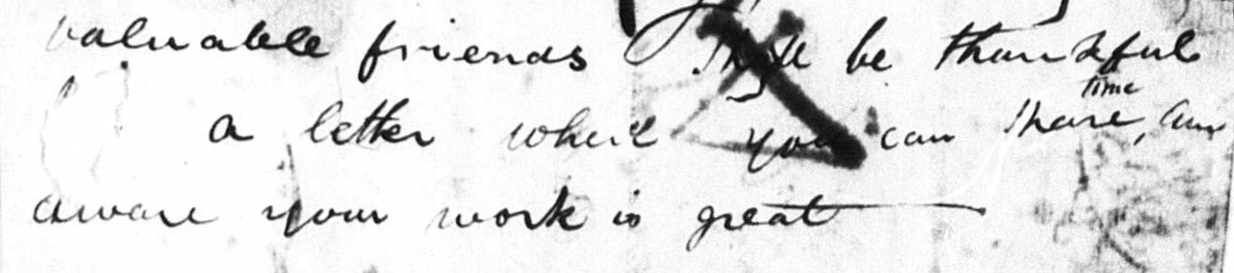 valuable friends I shall be thankful
time
a letter when you can share, am
aware your work is great